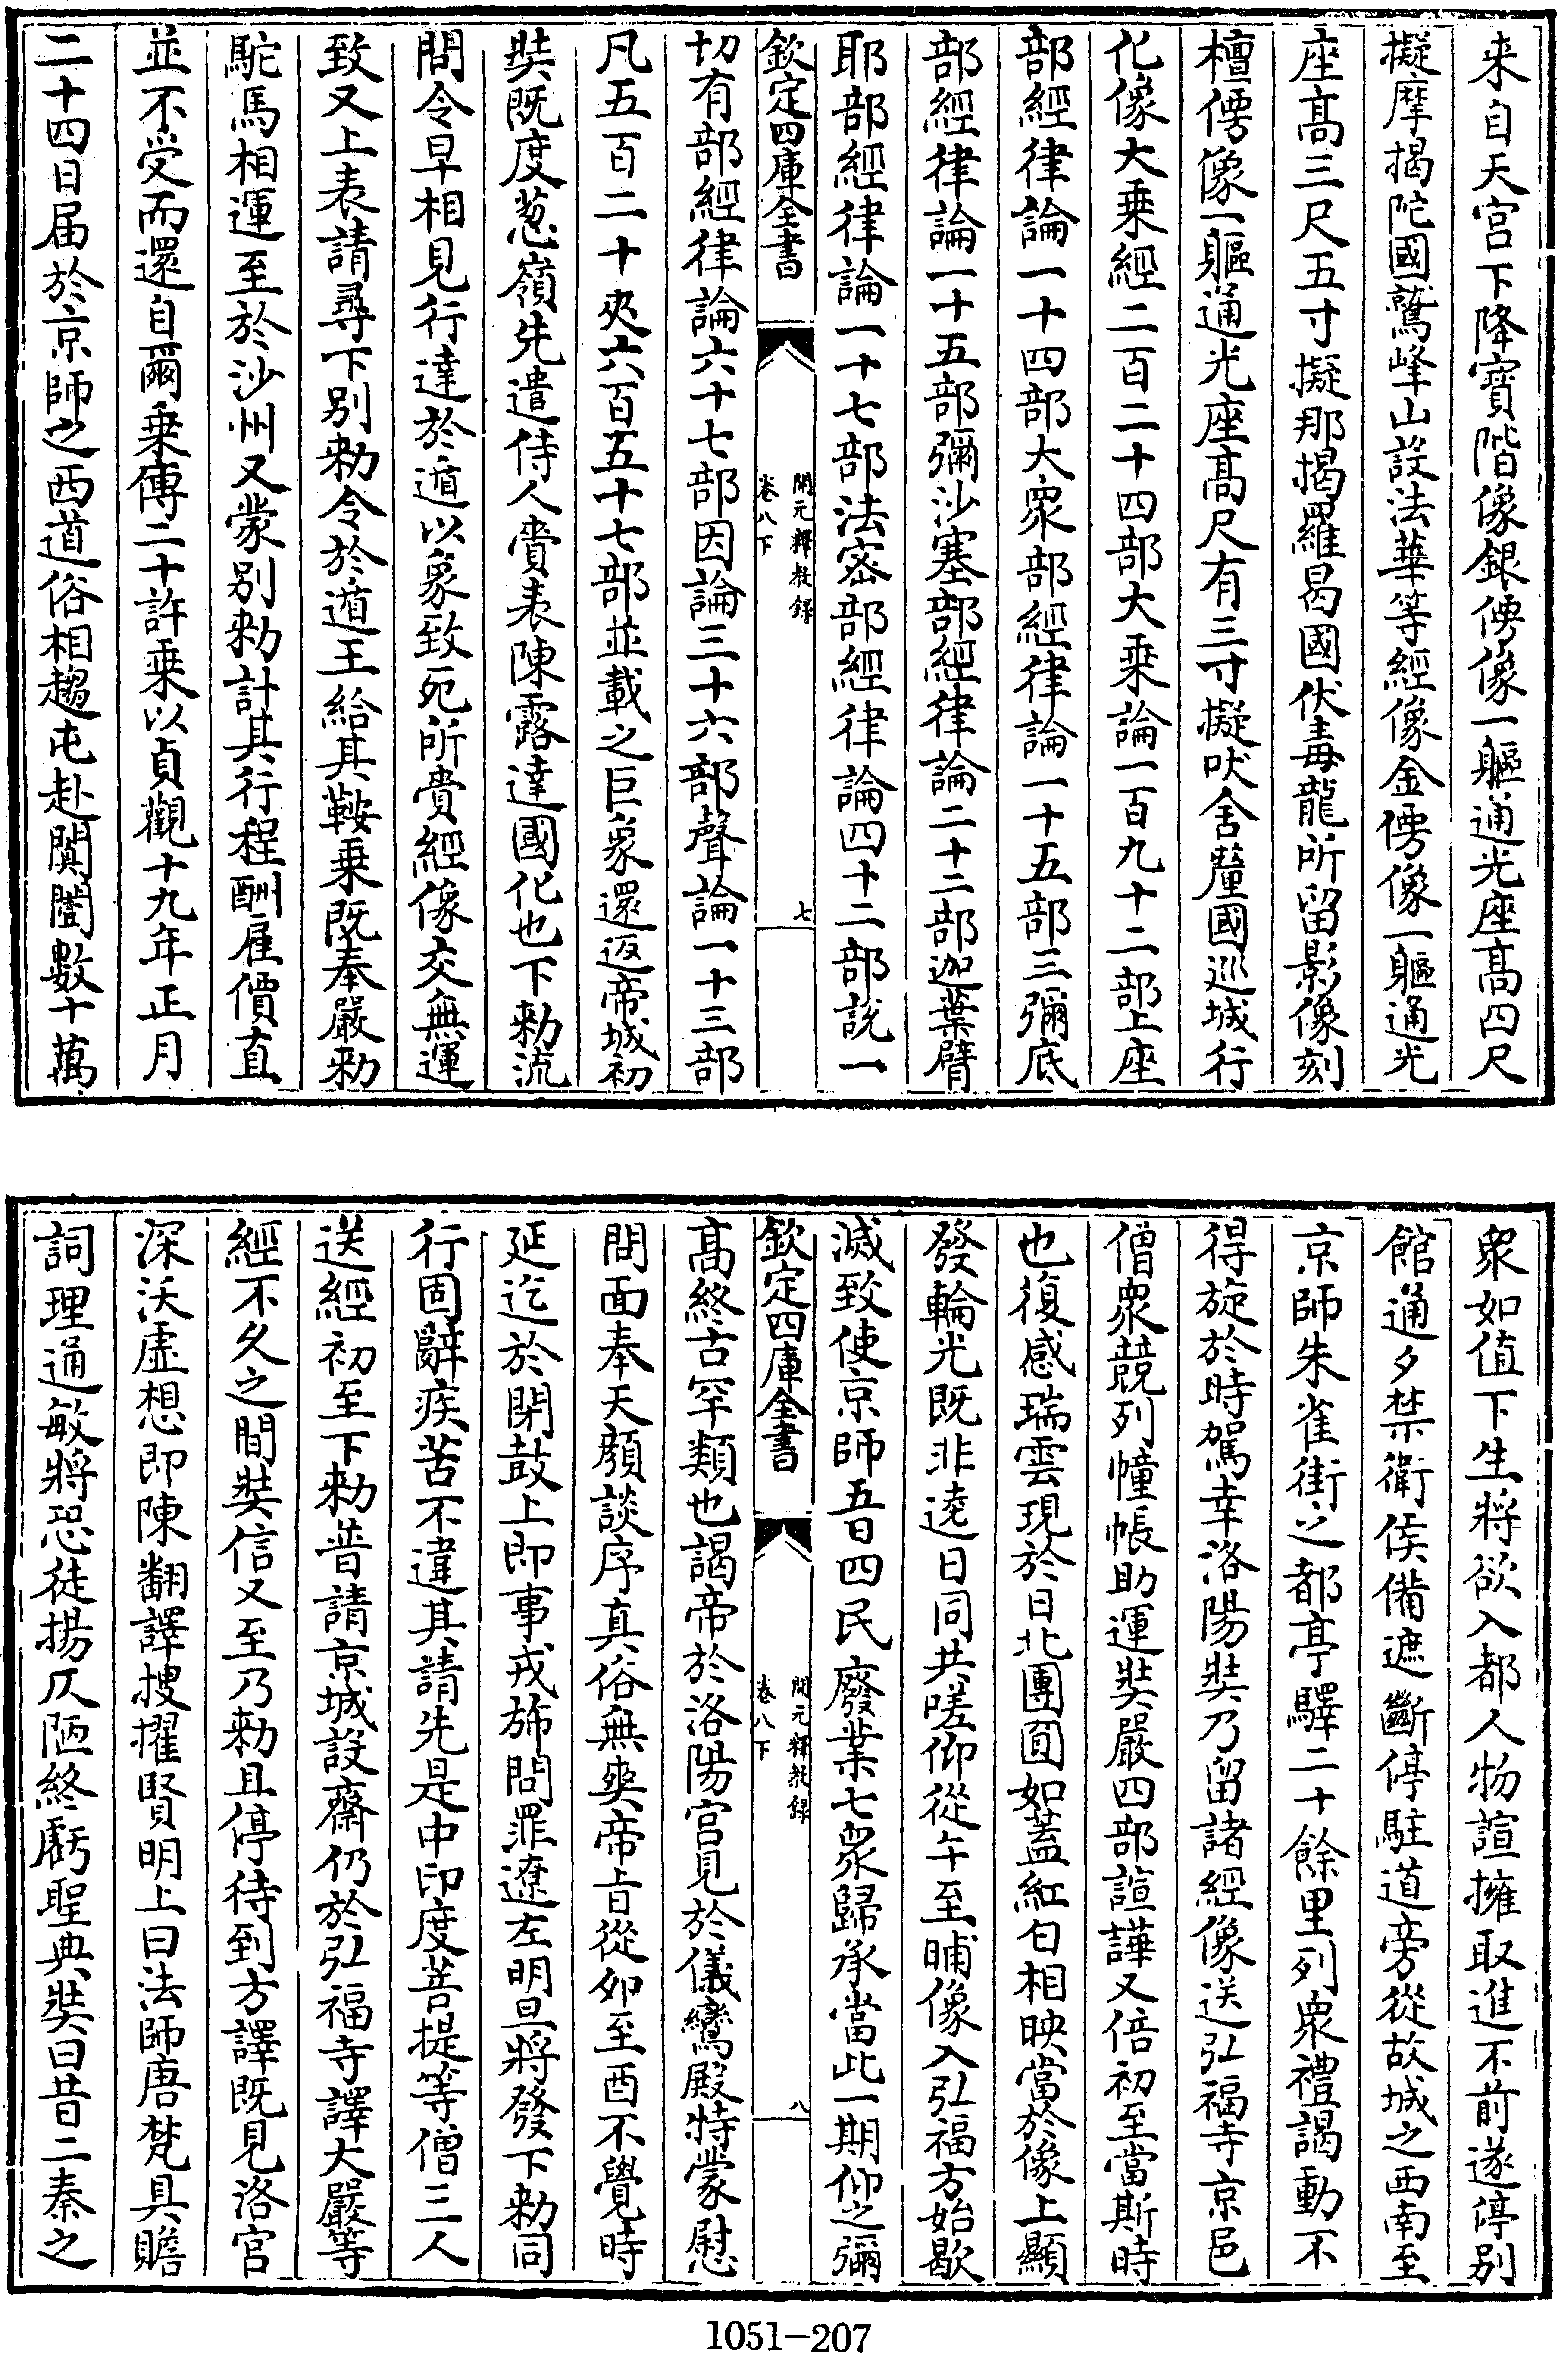 来自天宫下降寳階像銀佛像一軀通光座髙四尺
擬摩揭陀國鷲峰山設法華等經像金佛像一軀通光
座髙三尺五寸擬那揭羅曷國伏毒龍所留影像刻
檀佛像一軀通光座髙尺有三寸擬吠舍釐國巡城行
化像大乗經二百二十四部大乗論一百九十二部上座
部經律論一十四部大衆部經律論一十五部三彌底
部經律論一十五部彌沙塞部經律論二十二部迦葉臂
耶部經律論一十七部法密部經律論四十二部說一
欽定四庫全書
開元釋教録
卷八下
七
切有部經律論六十七部因論三十六部聲論一十三部
凡五百二十夾六百五十七部並載之巨象還返帝城初
奘既度葱嶺先遣侍人賫表陳露達國化也下勅流
問令早相見行達於遁以象致死所賫經像交無運
致又上表請尋下别勅令於遁王給其鞍乗既奉嚴勅
駝馬相運至於沙州又蒙别勅計其行程酬雇價直
並不受而還自爾乗傳二十許乗以貞觀十九年正月
二十四日届於京師之西道俗相趨屯赴闐闠數十萬
衆如值下生將欲入都人物諠擁取進不前遂停别
館通夕禁衛俟備遮斷停駐道旁從故城之西南至
京師朱雀街之都亭驛二十餘里列衆禮謁動不
得旋於時駕幸洛陽奘乃留諸經像送弘福寺京邑
僧衆競列幢帳助運奘嚴四部諠譁又倍初至當斯時
也復感瑞雲現於日北團圓如蓋紅白相映當於像上顯
發輪光既非逺日同共嗟仰從午至晡像入弘福方始歇
滅致使京師五日四民廢業七衆歸承當此一期仰之彌
欽定四庫全書
開元釋教録
卷八下
八
髙終古罕類也謁帝於洛陽宫見於儀鸞殿特蒙慰
問面奉天顔談序真俗無爽帝旨從夘至酉不覺時
延迄於閉鼓上即事戎旆問罪遼左明旦將發下勅同
行固辭疾苦不違其請先是中印度菩提等僧三人
送經初至下勅普請京城設齋仍於弘福寺譯大嚴等
經不久之間奘信又至乃勅且停待到方譯既見洛宫
深沃虚想即陳翻譯搜擢賢明上曰法師唐梵具贍
詞理通敏將恐徒揚仄陋終虧聖典奘曰昔二秦之
1051—207